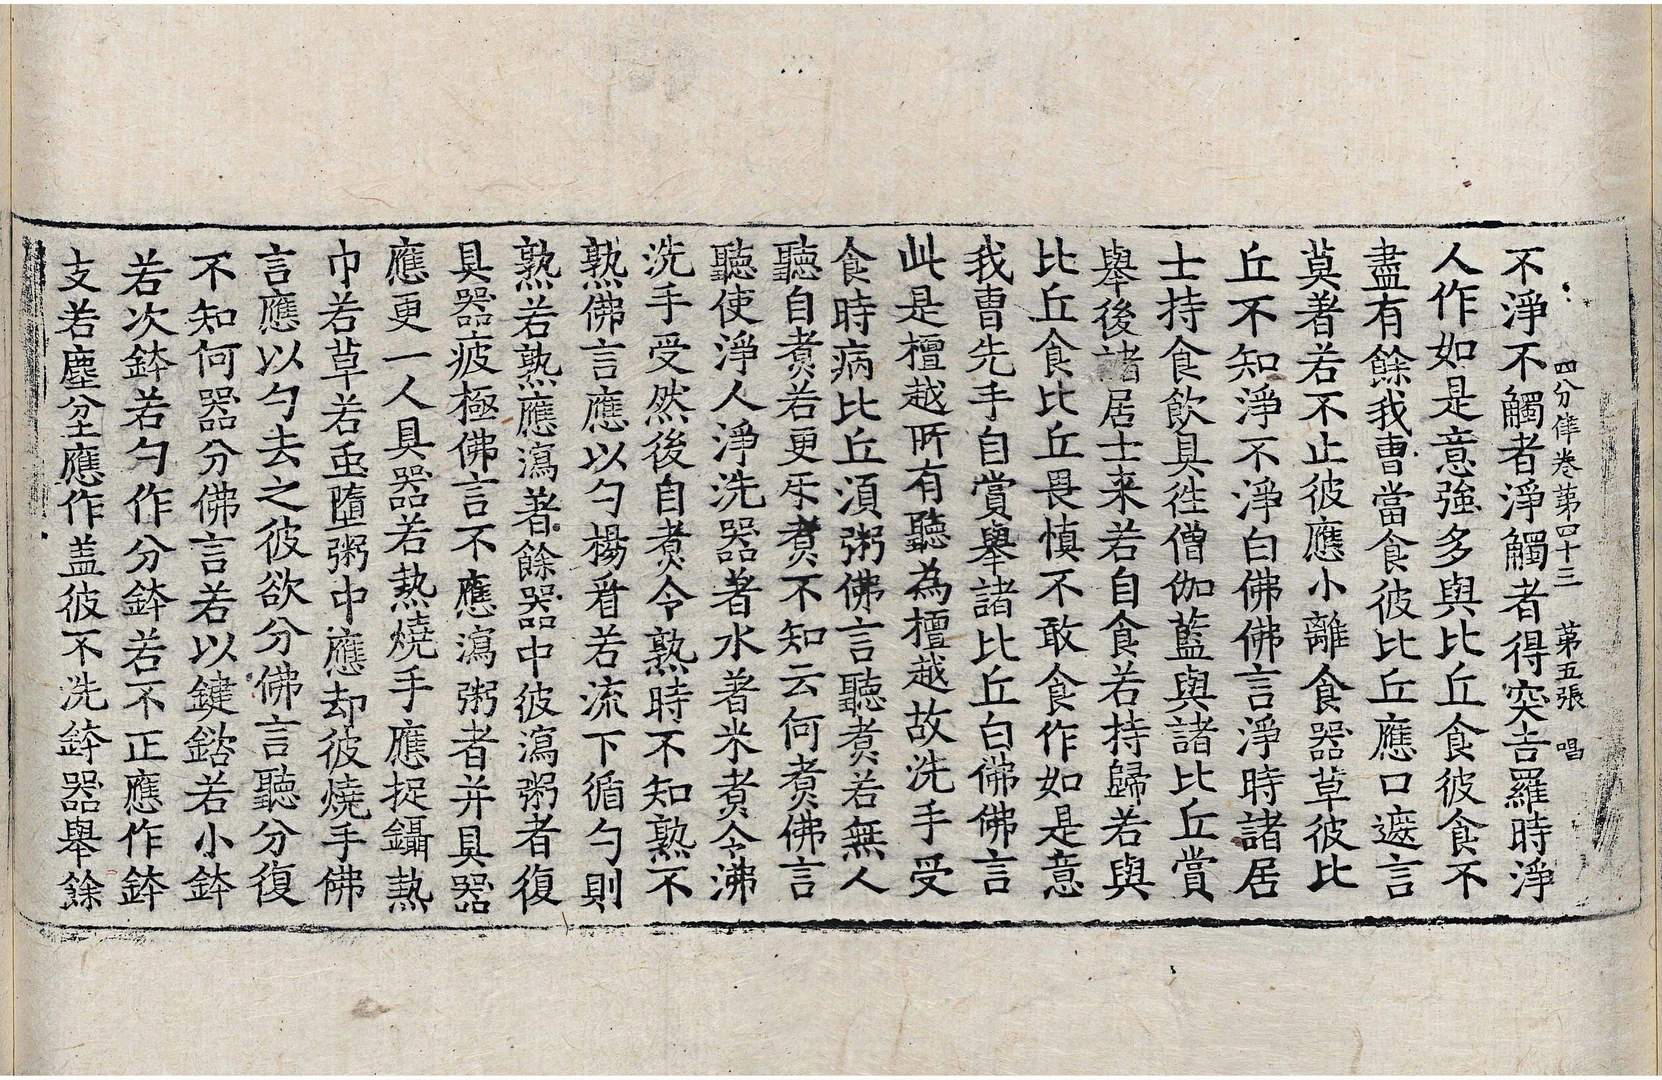 四分律卷第四十三 第五張 唱
不淨不觸者淨觸者得突吉羅時淨
人作如是意強多與比丘食彼食不
盡有餘我曹當食彼比丘應口遮言
莫著若不止彼應小離食器草彼比
丘不知淨不淨白佛佛言淨時諸居
士持食飲具徃僧伽藍與諸比丘嘗
舉後諸居士来若自食若持歸若與
比丘食比丘畏慎不敢食作如是意
我曹先手自嘗舉諸比丘白佛佛言
此是檀越所有聽為檀越故洗手受
食時病比丘湏粥佛言聽煑若無人
聽自煑若更互煑不知云何煑佛言
聽使淨人淨洗器著水著米煑令沸
洗手受然後自煑令熟時不知熟不
熟佛言應以勺揚看若流下循勺則
熟若熟應瀉著餘器中彼瀉粥者復
具器疲極佛言不應瀉粥者并具器
應更一人具器若熱燒手應捉鑷熱
巾若草若䖝墮粥中應却彼燒手佛
言應以勺去之彼欲分佛言聽分復
不知何器分佛言若以鍵𨩲若小鉢
若次鉢若勺作分鉢若不正應作鉢
支若塵坌應作盖彼不洗鉢器舉餘